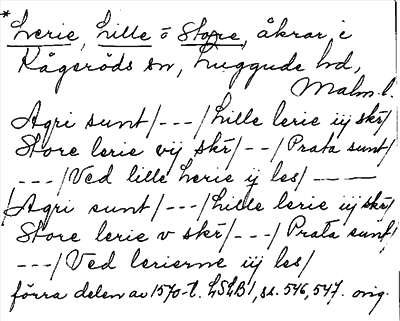 * Lerie, Lille o Store, åkrar i
Kågeröds sn, Luggude hd,
Malm. l.
Agri sunt/---/Lille lerie iij skr/
Store lerie vij skr/--/Prata sunt/
---/Ved lille Lerie ij les/---
Agri sunt/---/Lille lerie iij skr/
Store lerie v skr/---/Prata sunt/
---/Ved lerierne iij les/
förra delen av 1570-t. LSLB1, ss. 546, 547. orig.